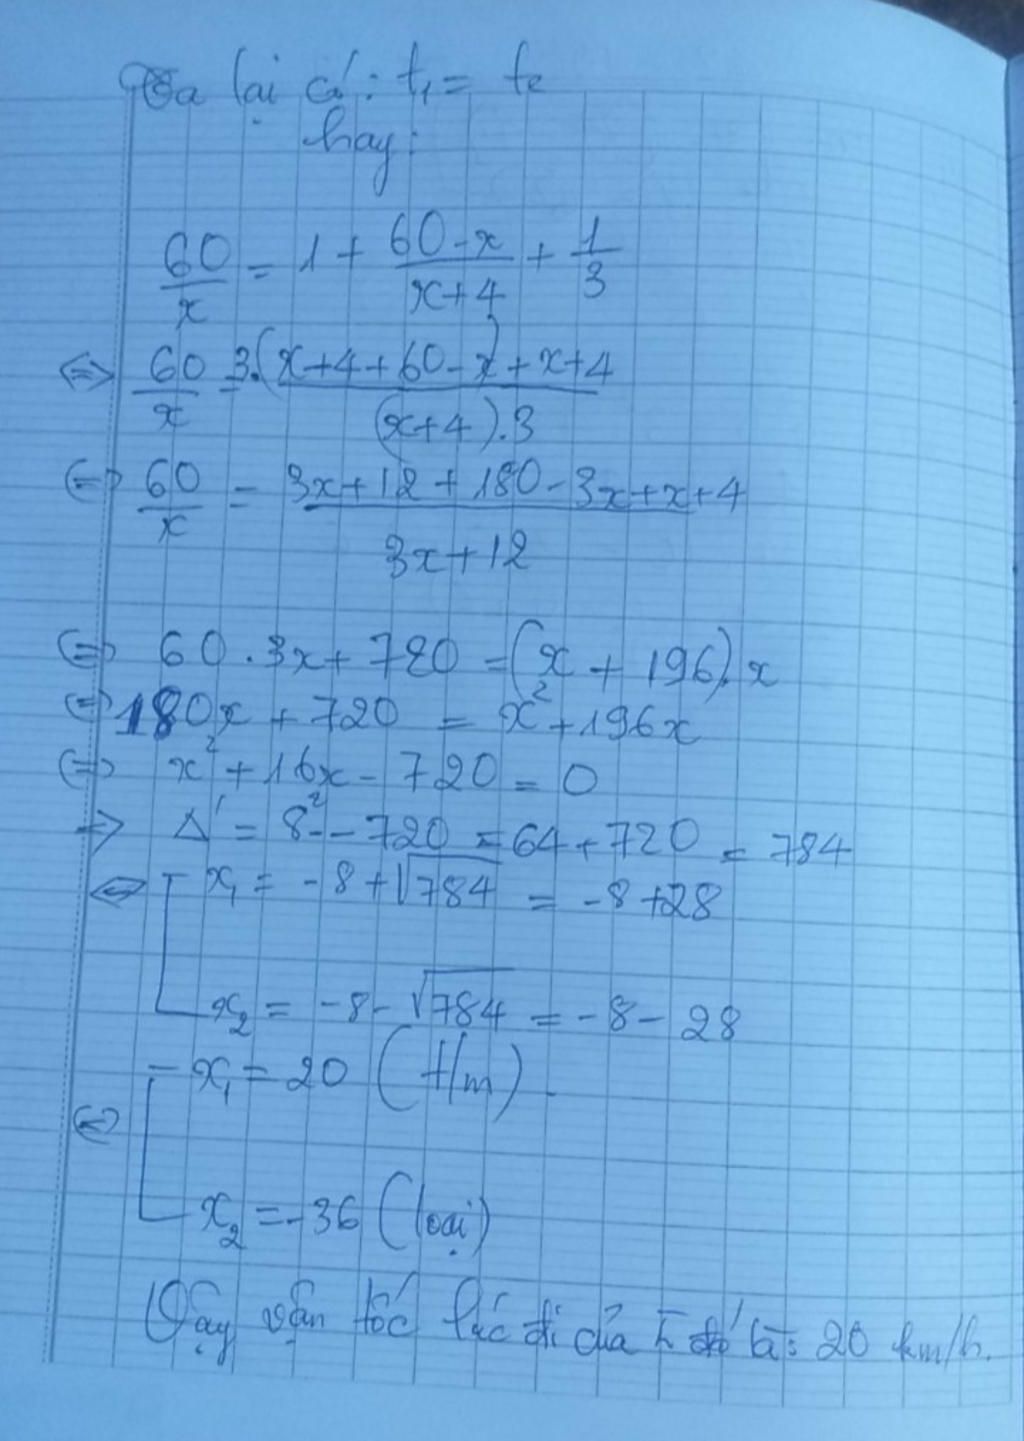 Ta lại có: t₁ = t₂
hay:
60/x = 1 + (60-x)/(x+4) + 1/3
⇔ 60/x = (3.(x+4+60-x)+x+4)/((x+4).3)
⇔ 60/x = (3x+12+180-3x+x+4)/(3x+12)
⇔ 60.3x+720 = (x+196).x
⇔ 180x+720 = x²+196x
⇔ x²+16x-720 = 0
⇒ Δ' = 8²--720 = 64+720 = 784
⇔ x₁ = -8+√784 = -8+28
x₂ = -8-√784 = -8-28
⇔ x₁ = 20 (t/m).
x₂ = -36 (loại)
Vậy vận tốc lúc đi của đó là: 20 km/h.